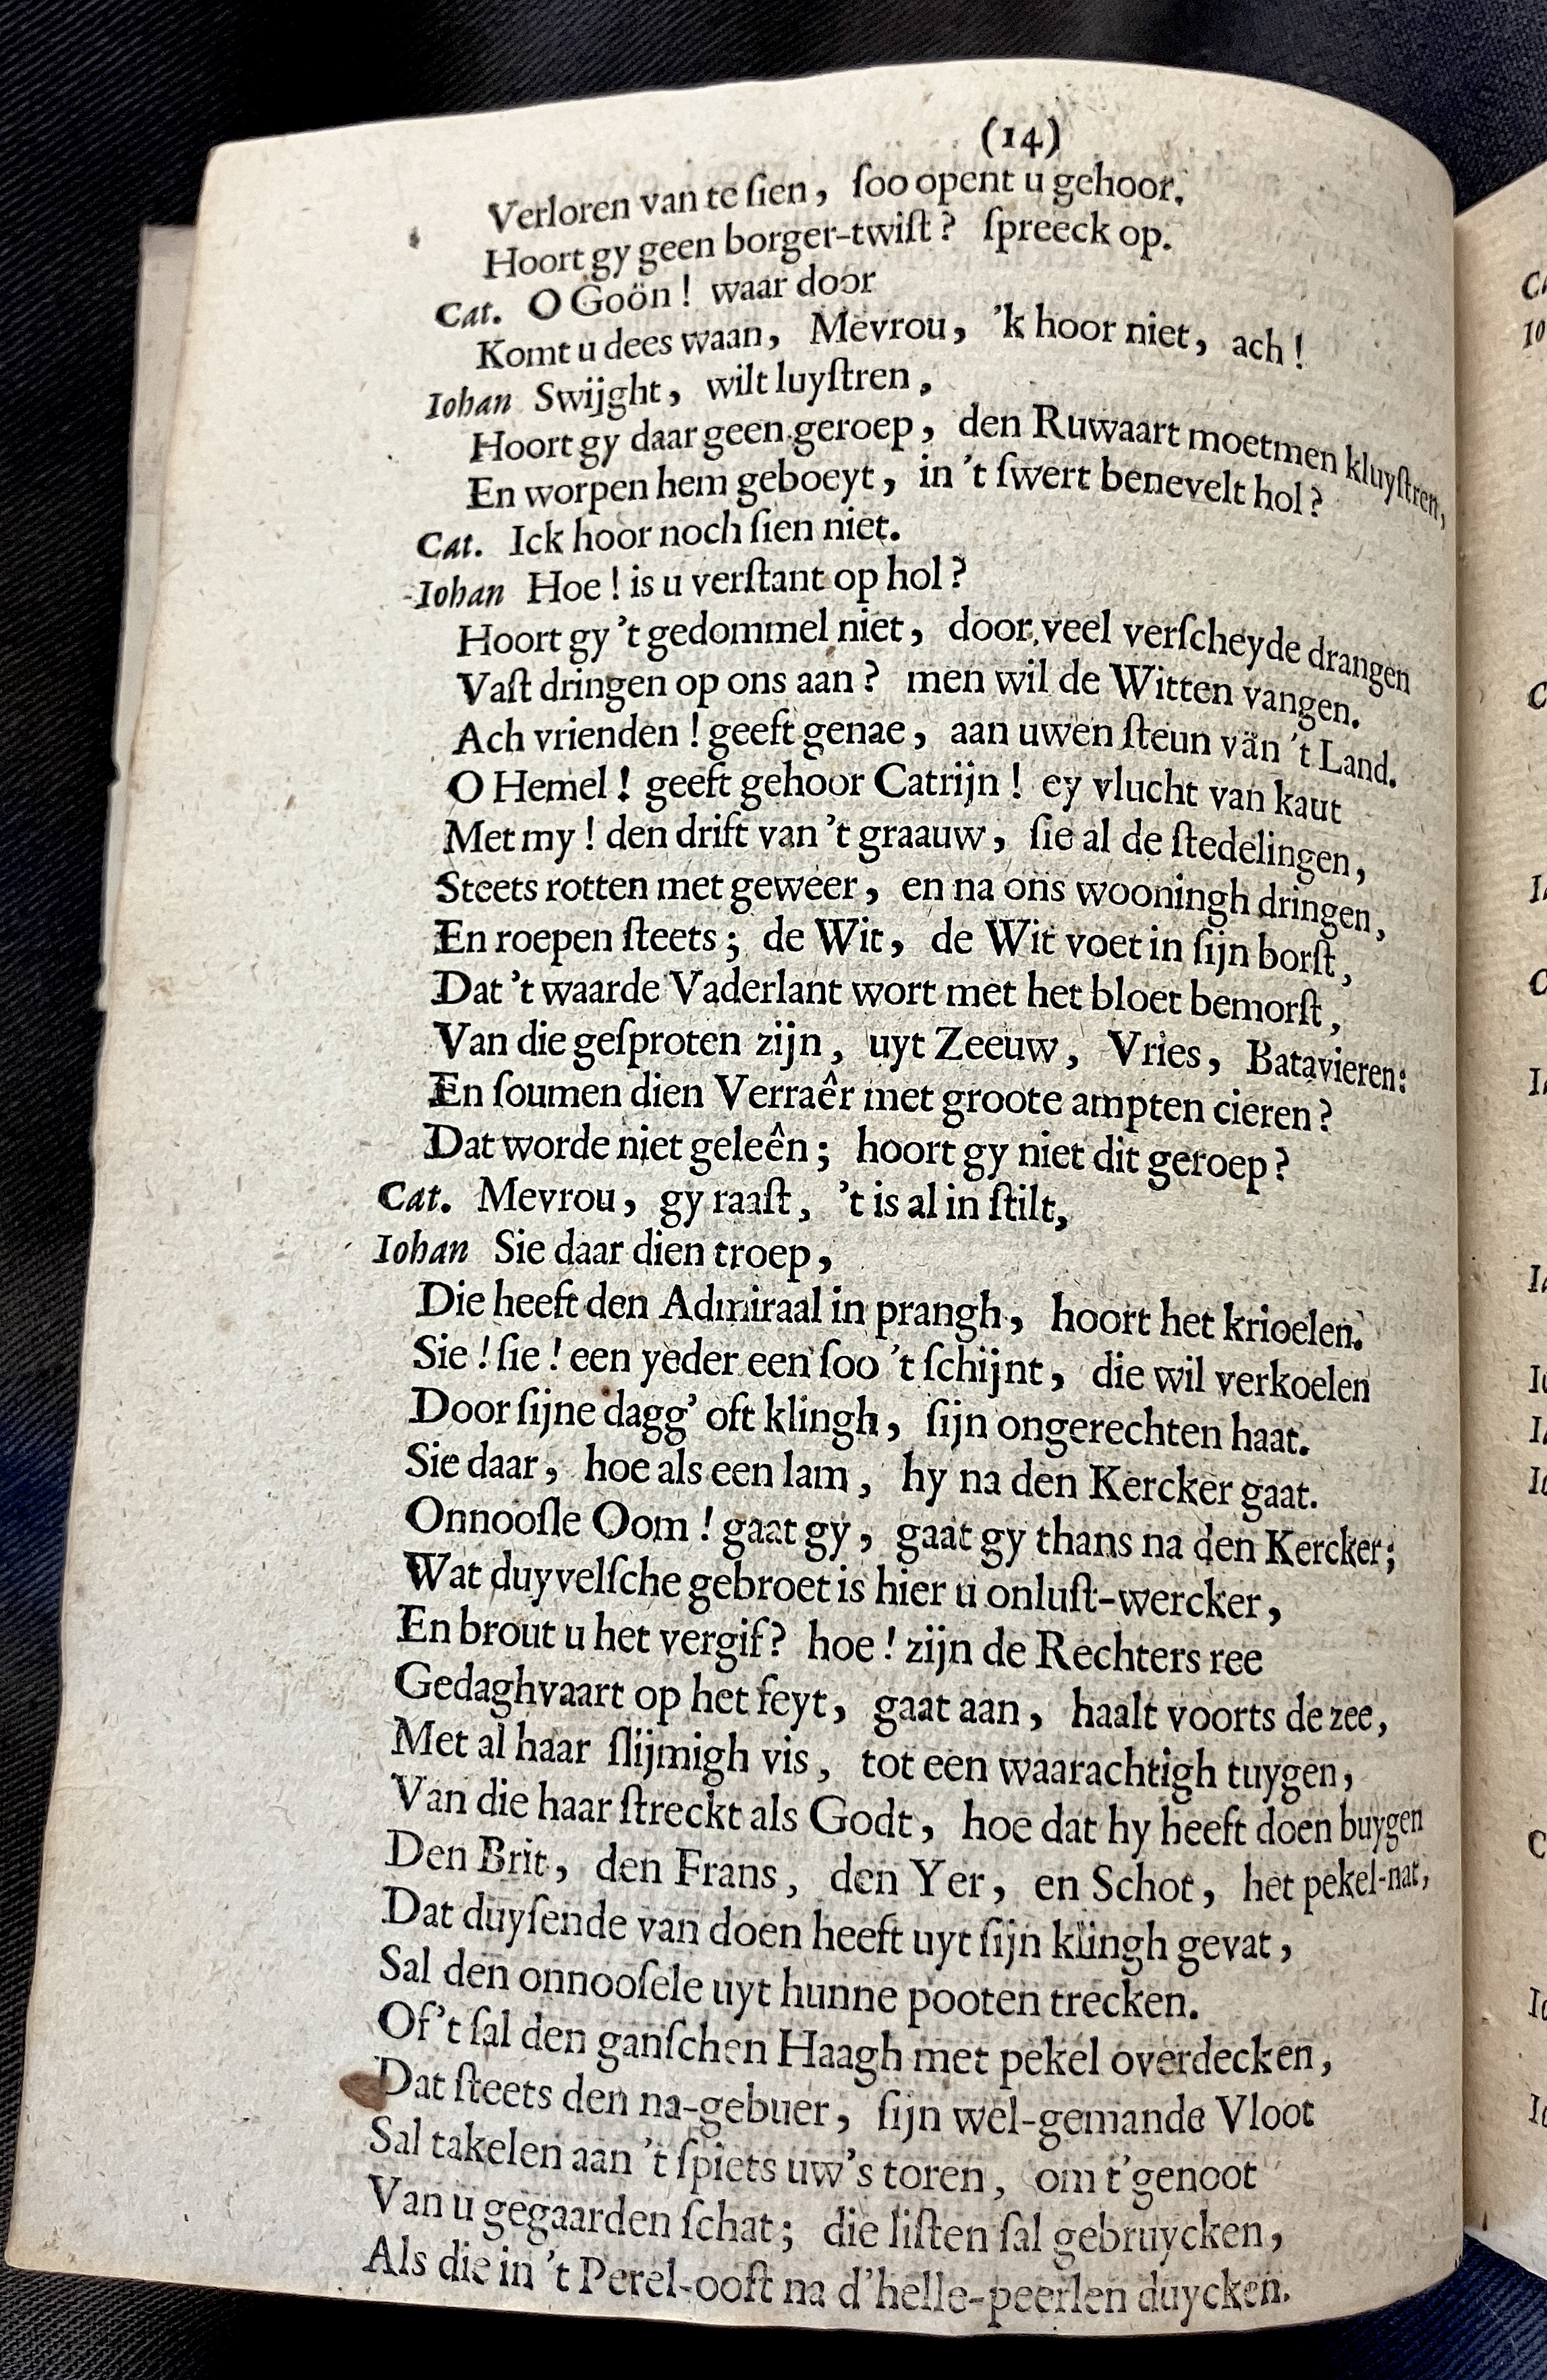 (14)
Verloren van te ſien, ſoo opent u gehoor.
Hoort gy geen borger-twiſt? ſpreeck op.
Cat. O Goön! waar door
Komt u dees waan, Mevrou, 'k hoor niet, ach!
Iohan Swijght, wilt luyſtren,
Hoort gy daar geen geroep, den Ruwaart moetmen kluyſtren,
En worpen hem geboeyt, in 't ſwert benevelt hol?
Cat. Ick hoor noch ſien niet.
Iohan Hoe! is u verſtant op hol?
Hoort gy 't gedommel niet, door veel verſcheyde drangen
Vaſt dringen op ons aan? men wil de Witten vangen.
Ach vrienden! geeft genae, aan uwen ſteun van 't Land.
O Hemel! geeft gehoor Catrijn! ey vlucht van kaut
Met my! den drift van 't graauw, ſie al de ſtedelingen,
Steets rotten met geweer, en na ons wooningh dringen,
En roepen ſteets; de Wit, de Wit voet in ſijn borſt,
Dat 't waarde Vaderlant wort met het bloet bemorſt,
Van die geſproten zijn, uyt Zeeuw, Vries, Batavieren:
En ſoumen dien Verraêr met groote ampten cieren?
Dat worde niet geleên; hoort gy niet dit geroep?
Cat. Mevrou, gy raaſt, 't is al in ſtilt,
Iohan Sie daar dien troep,
Die heeft den Admiraal in prangh, hoort het krioelen.
Sie! ſie! een yeder een ſoo 't ſchijnt, die wil verkoelen
Door ſijne dagg' oft klingh, ſijn ongerechten haat.
Sie daar, hoe als een lam, hy na den Kercker gaat.
Onnooſle Oom! gaat gy, gaat gy thans na den Kercker;
Wat duyvelſche gebroet is hier u onluſt-wercker,
En brout u het vergif? hoe! zijn de Rechters ree
Gedaghvaart op het feyt, gaat aan, haalt voorts de zee,
Met al haar ſlijmigh vis, tot een waarachtigh tuygen,
Van die haar ſtreckt als Godt, hoe dat hy heeft doen buygen
Den Brit, den Frans, den Yer, en Schot, het pekel-nat,
Dat duyſende van doen heeft uyt ſijn klingh gevat,
Sal den onnooſele uyt hunne pooten trecken.
Of't ſal den ganſchen Haagh met pekel overdecken,
Dat ſteets den na-gebuer, ſijn wel-gemande Vloot
Sal takelen aan 't ſpiets uw's toren, om t'genoot
Van u gegaarden ſchat; die liſten ſal gebruycken,
Als die in 't Perel-ooſt na d'helle-peerlen duycken.